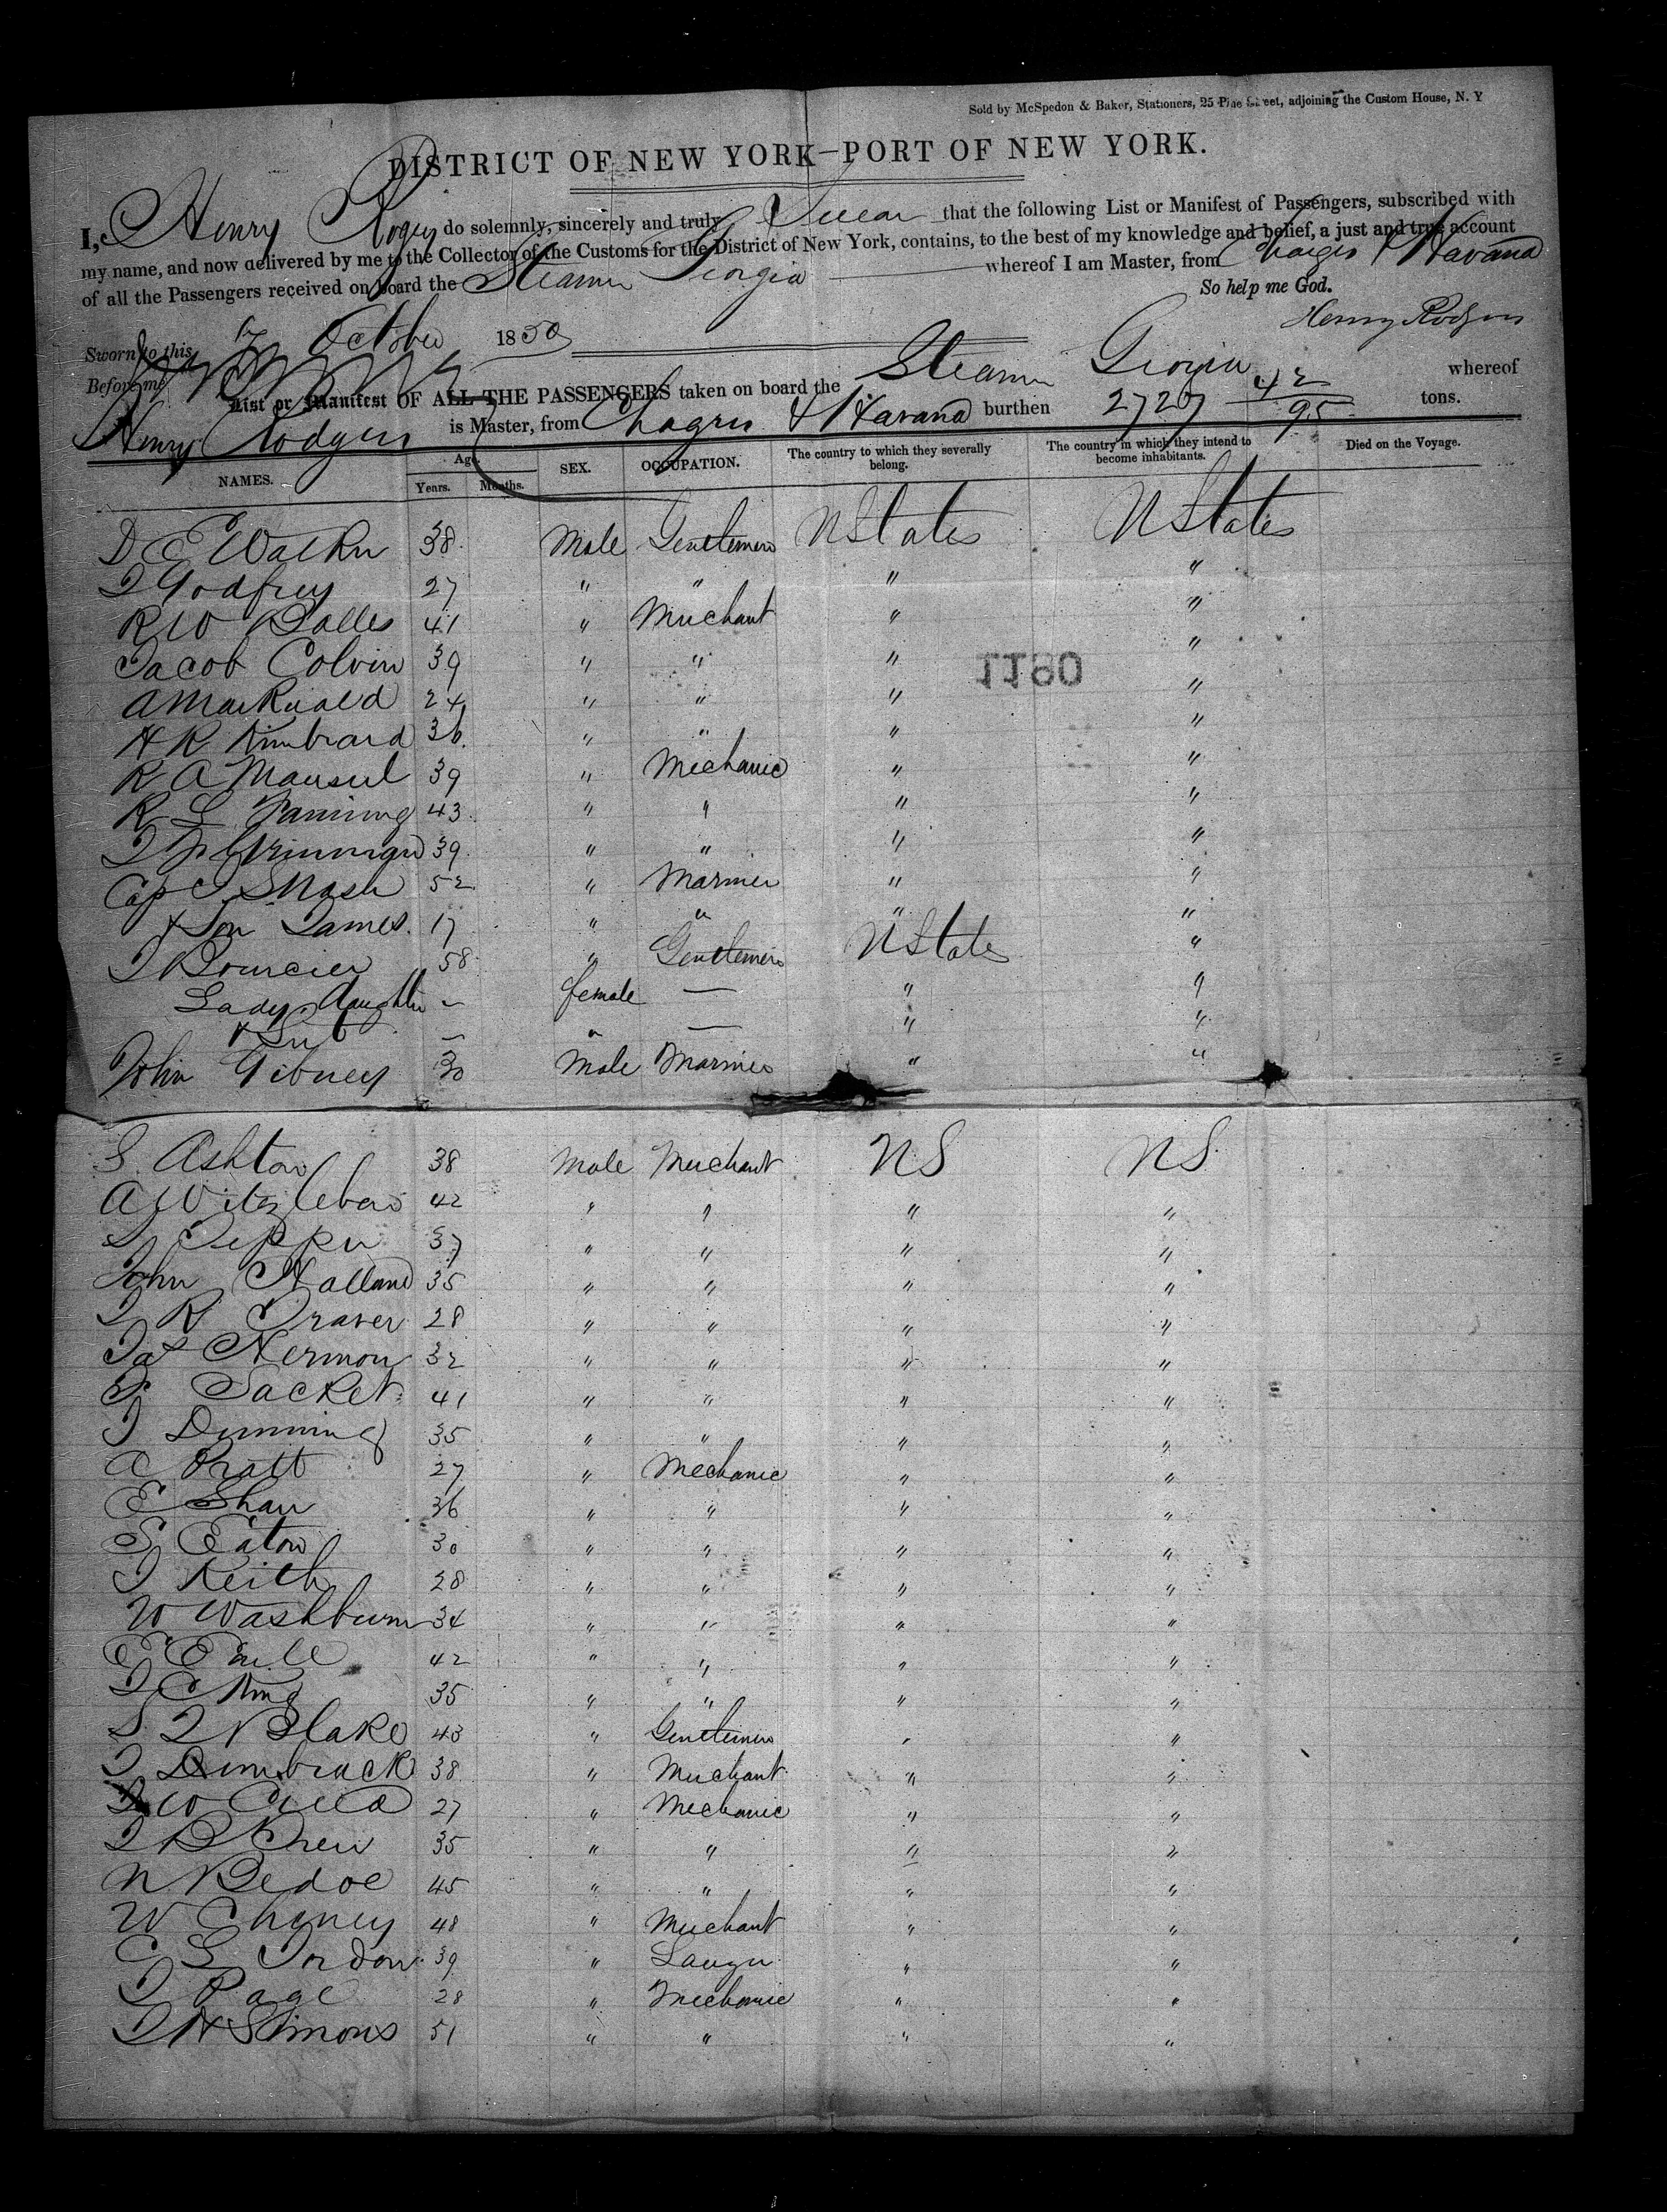 Sold by McSpedon & Baker, Stationers, 25 Pine Street, adjoining the Custom House, N. Y
DISTRICT OF NEW YORK—PORT OF NEW YORK.
I, Henry Rogers do solemnly, sincerely and truly Swear that the following List or Manifest of Passengers, subscribed with
my name, and now delivered by me to the Collector of the Customs for the District of New York, contains, to the best of my knowledge and belief, a just and true account
of all the Passengers received on board the Steamer Georgia whereof I am Master, from Chagres & Havana
So help me God.
Sworn to this 7 October 1850 Henry Rodgers
Before me
List or Manifest OF ALL THE PASSENGERS taken on board the Steamer Georgia whereof
Henry Rodgers is Master, from Chagres & Havana burthen 2727 42/95 tons.
NAMES. Age. Years. Months. SEX. OCCUPATION. The country to which they severally belong. The country in which they intend to become inhabitants. Died on the Voyage.
D E Walker 38 Male Gentlemen U States U States
J Godfrey 27 " " " "
R W Bolles 41 " Merchant " "
Jacob Colvin 39 " " " "
A Markwald 24 " " " "
H R Kimbrard 36 " " " "
R A Mansul 39 " Mechanic " "
R L Fanning 43 " " " "
39 " " " "
Capt J S Nash 52 " Mariner " "
& Son James. 17 " " " "
J Bourcier 58 " Gentlemen U States "
Lady, daughter – female — " "
& – " — " "
John Gibney 30 Male Mariner " "
1190
S Ashton 38 Male Merchant U S U S
A Witzleben 42 " " " "
Tepper 37 " " " "
John Holland 35 " " " "
J R Traver 28 " " " "
Jas Hermon 32 " " " "
Sacket 41 " " " "
J Dunning 35 " " " "
A Pratt 27 " Mechanic " "
E Shaw 36 " " " "
S Eaton 30 " " " "
J Keith 28 " " " "
W Washburn 34 " " " "
42 " " " "
J C King 35 " " " "
S J Blake 43 " Gentlemen " "
J Dimbrack 38 " Merchant " "
W 27 " Mechanic " "
J B Chew 35 " " " "
N Bedoe 45 " " " "
W Cheney 48 " Merchant " "
C L Jordon 39 " Lawyer " "
J Page 28 " Mechanic " "
J H Simons 51 " " " "